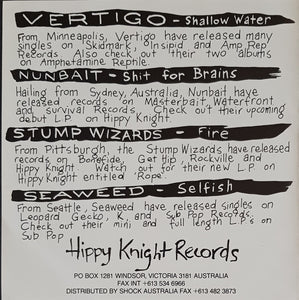 VERTIGO - Shallow Water
From, Minneapolis, Vertigo have released many
singles on Skidmark, Insipid and Amp Rep
Records Also check out their two albums
on Amphetamine Reptile.
NUNBAIT - Shit for Brains
Hailing from Sydney, Australia, Nunbait have
released records on Masterbait, Waterfront
and Survival Records. Check out their upcoming
debut L.P on Hippy Knight.
STUMP WIZARDS - Fire
From Pittsburgh, the Stump Wizards have released
records on Bonefide, Get Hip, Rockville and
Hippy Knight Watch out for their new L.P on
Hippy Knight entitled 'Rope'.
SEAWEED - Selfish
From Seattle, Seaweed have released singles on
Leopard Gecko, K, and Sub Pop Records.
Check out their mini and full length L.P's on
Sub Pop
Hippy Knight Records
PO BOX 1281 WINDSOR, VICTORIA 3181 AUSTRALIA
FAX INT +613 534 6966
DISTRIBUTED BY SHOCK AUSTRALIA FAX +613 482 3873